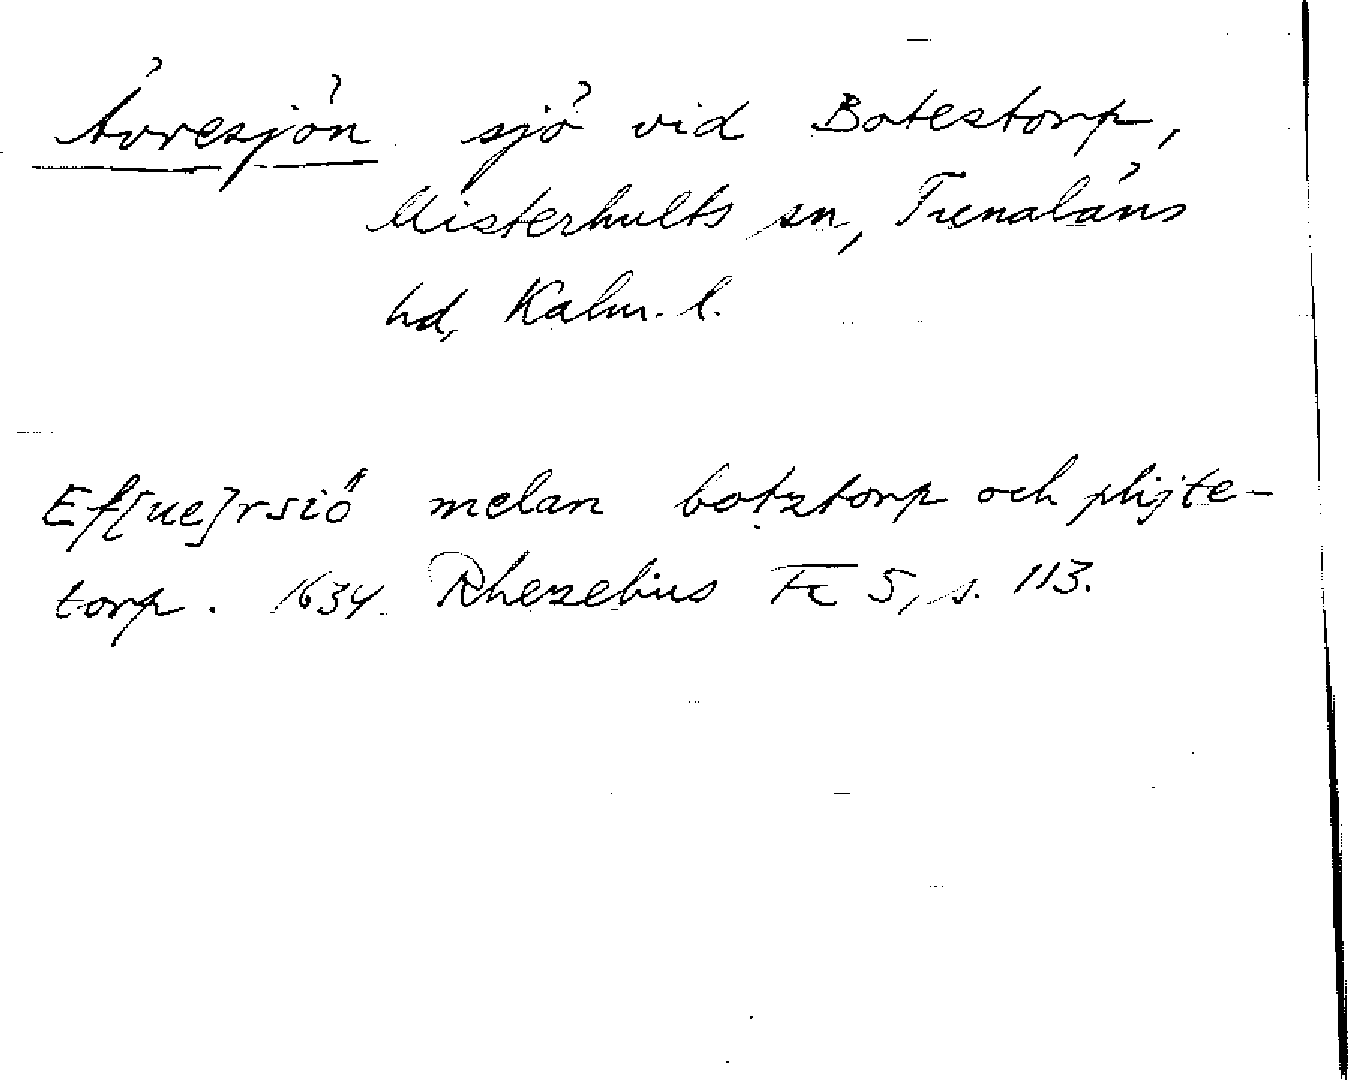 Ävresjön sjö vid Botestorp,
Misterhults sn, Tunaläns
hd, Kalm. l.
Ef[ue]rsiö melan botztorp och phijte-
torp. 1634 Rhezelius Fc 5, s. 113.